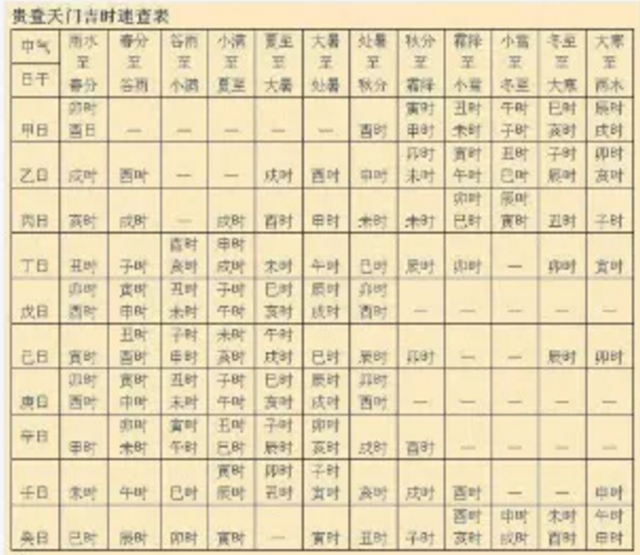 贵登天门吉时速查表
中气 雨水 春分 谷雨 小满 夏至 大暑 处暑 秋分 霜降 小雪 冬至 大寒
至 至 至 至 至 至 至 至 至 至 至 至
日干 春分 谷雨 小满 夏至 大暑 处暑 秋分 霜降 小雪 冬至 大寒 雨水
卯时 寅时 丑时 午时 巳时 辰时
甲日 酉日 — — — — — 酉时 申时 未时 子时 亥时 戌时
卯时 寅时 丑时 子时 卯时
乙日 戌时 酉时 — — 戌时 酉时 申时 未时 午时 巳时 辰时 亥时
卯时 辰时
丙日 亥时 戌时 — 戌时 酉时 申时 未时 未时 巳时 寅时 丑时 子时
酉时 申时
丁日 丑时 子时 亥时 戌时 未时 午时 巳时 辰时 卯时 — 卯时 寅时
卯时 寅时 丑时 子时 巳时 辰时 卯时
戊日 酉时 申时 未时 午时 亥时 戌时 酉时 — — — — —
丑时 子时 未时 午时
己日 寅时 酉时 申时 亥时 戌时 巳时 辰时 卯时 — — 辰时 卯时
卯时 寅时 丑时 子时 巳时 辰时 卯时
庚日 酉时 申时 未时 午时 亥时 戌时 酉时 — — — — —
卯时 寅时 丑时 子时 卯时
辛日 申时 未时 午时 巳时 辰时 亥时 戌时 酉时 — — — —
寅时 卯时 子时
壬日 未时 午时 巳时 辰时 丑时 寅时 亥时 戌时 酉时 — — 申时
酉时 申时 未时 午时
癸日 巳时 辰时 卯时 寅时 — 寅时 丑时 子时 亥时 戌时 酉时 申时